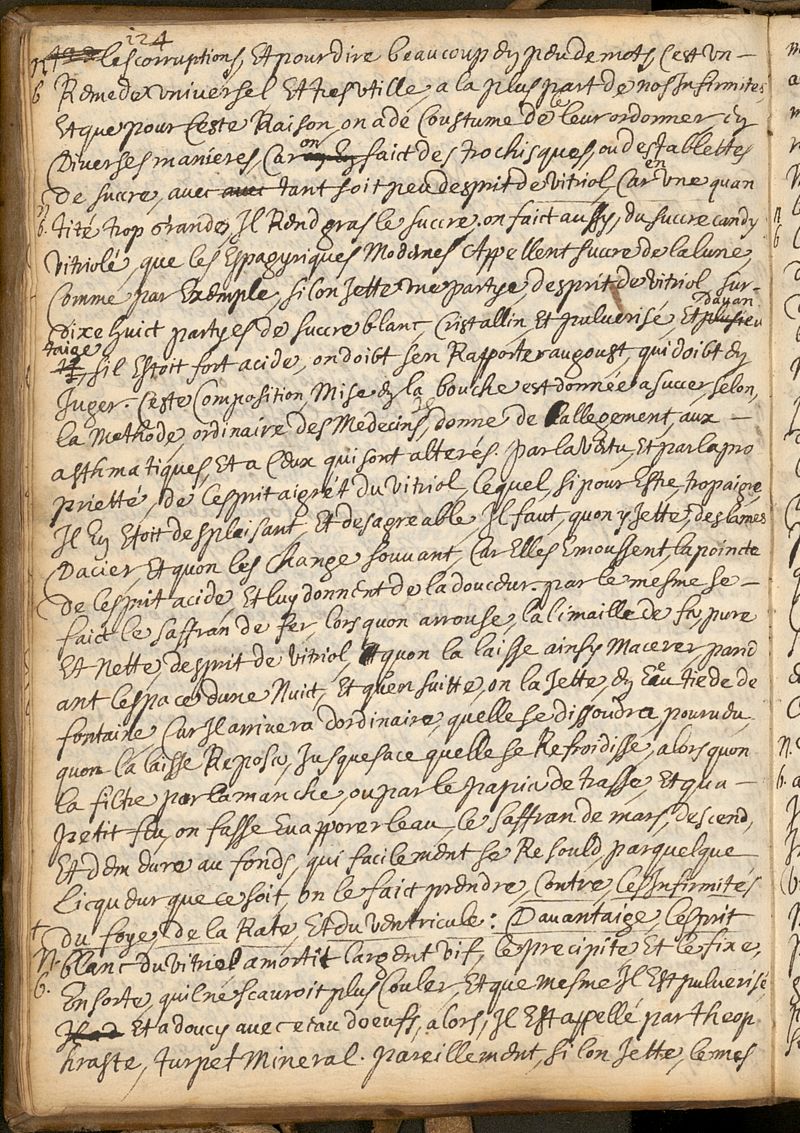 124
les corruptions, Et pour dire beaucoup en peu de mots, c'est un -
Remede universel Et tres utille, a la plus part de nos Infirmites,
Et que pour Ceste Raison, on a de Coustume de le leur ordonner en
Diverses manieres, Car on faict des trochisques, ou des tablettes
de sucre, avec tant soit peu d'esprit de vitriol, Car en une quan
tité trop grande, Il Rend gras le sucre. on faict aussy, du sucre candy
vitriolé, que les Espagyriques Modernes Appellent sucre de la lune,
Comme par Exemple, si lon Jette une partye, desprit de vitriol sur-
dixe huict partyes de sucre blanc, Cristallin, Et puluerisé Et dauan
taige, sil Estoit fort acide, on doibt sen Rapporter au goust, qui doibt en
Juger. Ceste Composition, Mise en la bouche est donnée a sucer, selon,
la Methode, ordinaire des Medecins, donne de lallegement, aux -
asthmatiques, Et a Ceux qui sont alterés. par la vertu, Et par la pro
prietté, de lesprit aigret du vitriol, lequel, si pour Estre, trop aigre,
Il En Etoit desplaisant, Et desagreable, Il faut, quon y Jette, des lames
Dacier, Et quon les Change souvant, Car Elles Emoussent, la pointe
de lesprit acide, Et luy donnent de la douceur. par le mesme se -
faict le saffran de fer, lors quon arrouse, la limaille de fer, pure
Et Nette, desprit de vitriol, Et quon la laisse ainsy Macerer, pand
ant lespace dune Nuict, Et quen suitte, on la Jette, en Eau tiede de
fontaine, Car Il arrivera dordinaire, quelle se dissoudra, pourudu,
quon la laisse Reposer, Jusques a ce quelle se Refroidisse, alors quon
la filtre par la manche, ou par le papier de trasse, Et qua -
petit feu, on fasse Euapporer leau, le saffran de mars, descend,
Et demeure au fonds, qui facilement se Resould, par quelque
Licqueur que ce soit, on le faict prendre, Contre, les Infirmités
du foye, de la Rate, Et du Ventricule: Dauantaige, lesprit
blanc du vitriol amortit largent vif, le precipite, Et le fixe,
En sorte, quil ne scauroit plus Couler, Et que mesme, Il Est puluerisé
Et adoucy avec eau doeufs, alors, Il Est appellé par theop
hraste, turpet mineral. pareillement, si lon Jette, le mes